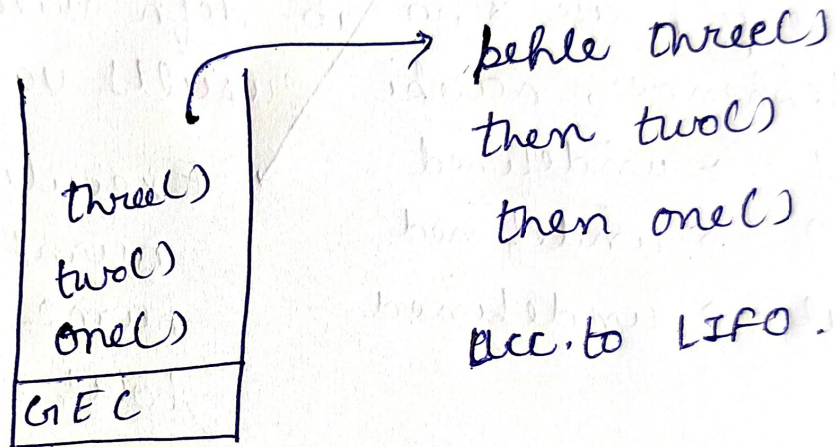 three()
two()
one()
GEC
pehle three()
then two()
then one()
acc. to LIFO.